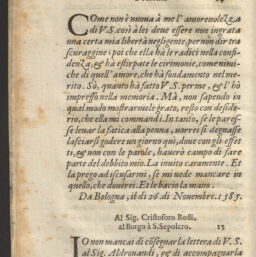 COme non è nuoua à me l'amoreuolezza
di V.S. così à lei deue essere non ingrata
una certa mia libertà negligente, per non dir tra
scuraggine: poi che ella hà le radici nella confi-
denza, & hà estirpate le cirimonie, come nimi-
che di quell'amore, che hà fondamento nel me-
rito. Sò, quanto hà fatto V.S. per me, & l'hò
impresso nella memoria. Mà, non sapendo in
qual modo mostrarmele grato, resto con deside-
rio, che ella mi commandi. In tanto, se le pares-
se leuar la fatica alla penna, uorrei si degnasse
lasciarsi godere un giorno quì, doue con gli effet
ti, & non con le parole, hauerò campo di fare
parte del debbito mio. La inuito caramente. Et
la prego ad iscusarmi, se mi uede mancare in
quello, che douerei. Et le bacio la mano.
Da Bologna, il dì 26 di Nouembre. 1585.
Al Sig. Cristoforo Rosli.
al Borgo à S. Sepolcro. 15
IO non mancai di cōsegnar la lettera di V.S.
al Sig. Aldrouandi, & di accompagnarla